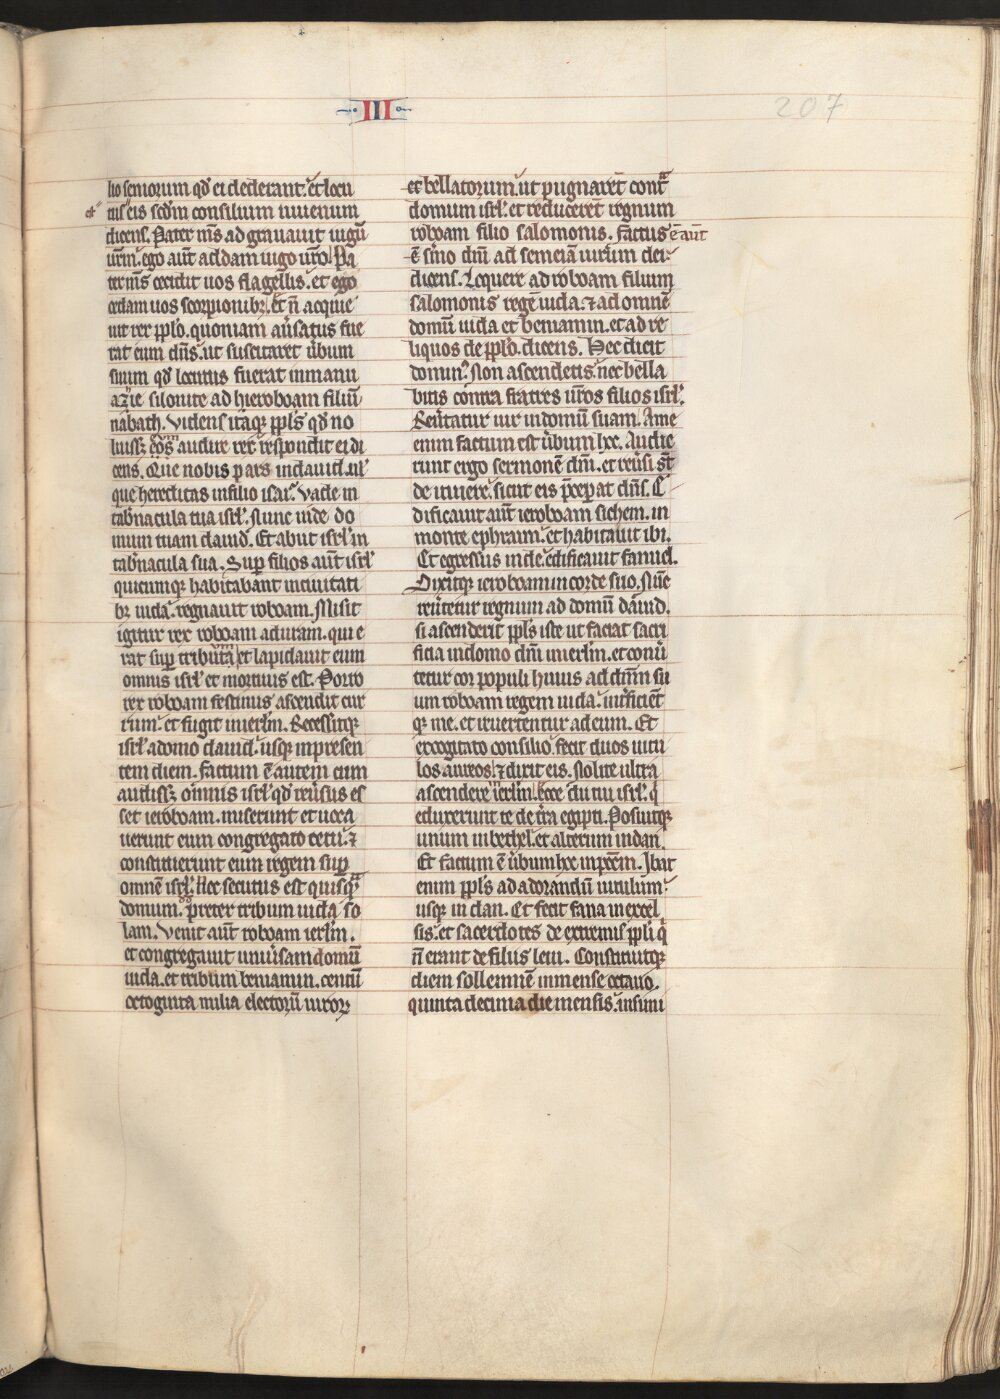 III
207
lio seniorum qd̛ ei dederant. et locu
tus eis scd̛m consilium iuuenum
dicens. Pater mr̄s ad grauauit iugū
ur̄m. ego aūt addam iugo ur̄o. Pa
ter mr̄s cecidit uos flagellis. et ego
cedam uos scorpionibȝ. Et n̄ acquie
uit rex pplo. quoniam au̓satus fue
rat eum dn̄s. ut suscitaret ūbum
suum qd̛ locutus fuerat in manu
azie silonite ad hieroboam filiū
nabath. Videns itaqꝫ ppl̄s qd̛ no
luissꝫ eos audire rex respondit ei di
cens. Que nobis pars in dauid. ul̛
que hereditas in filio isai. Vade in
tab̓nacula tua isrl̓. Nunc uide do
mum tuam dauid. Et abiit isrl̓ in
tab̓nacula sua. Sup̱ filios aūt isrl̓
quicumqꝫ habitabant in ciuitati
bȝ iuda. regnauit roboam. Misit
igitur rex roboam aduram. qui e
rat sup̱ tributa et lapidauit eum
omnis isrl̓ et mortuus est. Porro
rex roboam festinus ascendit cur
rum. et fugit in ierl̄m. Recessitqꝫ
isrl̓ a domo dauid. usqꝫ in presen
tem diem. factum ē autem cum
audissꝫ omnis isrl̓ qd̛ reu̓sus es
set ieroboam. miserunt et uoca
uerunt eum congregato cetu. ⁊
constituerunt eum regem sup̱
omnē isrl̓. Nec secutus est quisqᷓ
domum. preter tribum iuda so
lam. Venit aūt roboam ierl̄m.
et congregauit uniu̓sam domū
iuda. et tribum beniamin. centū
octoginta milia electorū uiroꝝ
et bellatorum. ut pugnaret contᷓ
domum isrl̓. et reduceret regnum
roboam filio salomonis. factus ē aūt
ē sm̄o dn̄i ad semeiā uirum dei
dicens. Loquere ad roboam filium
salomonis regē iuda. ⁊ ad omnē
domū iuda et beniamin. et ad re
liquos de pplo. dicens. Hec dicit
dominꝰ. Non ascendetis nec bella
bitis contra fratres ur̄os filios isrl̓.
Reu̓tatur uir in domū suam. A me
enim factum est ūbum hoc. Audie
runt ergo sermonē dn̄i. et reu̓si st̄
de itinere. sicut eis p̄cep̱at dn̄s. E
dificauit aūt ieroboam sichem. in
monte ephraim. et habitauit ibi.
Et egressus inde. edificauit fanuel.
Dixitqꝫ ieroboam in corde suo. Nūc
reu̓tetur regnum ad domū dauid.
si ascenderit ppl̄s iste ut faciat sacri
ficia in domo dn̄i in ierl̄m. et conu̓
tetur cor populi huius ad dn̄m su
um roboam regem iuda. int̓ficient
qꝫ me. et reuertentur ad eum. Et
excogitato consilio. fecit duos uitu
los aureos. ⁊ dixit eis. Nolite ultra
ascendere ierl̄m. ecce dii tui isrl̓. q̄
eduxerunt te de tr̄a egipti. Posuitqꝫ
unum in bethel. et alterum in dan.
Et factum ē ūbum hoc in pec̄m. Ibat
enim ppl̄s ad adorandū uitulum.
usqꝫ in dan. Et fecit fana in excel
sis. et sacerdotes de extremis ppli q̄
n̄ erant de filiis leui. Constituitqꝫ
diem sollemnē in mense octauo.
quinta decima die mensis. in simi